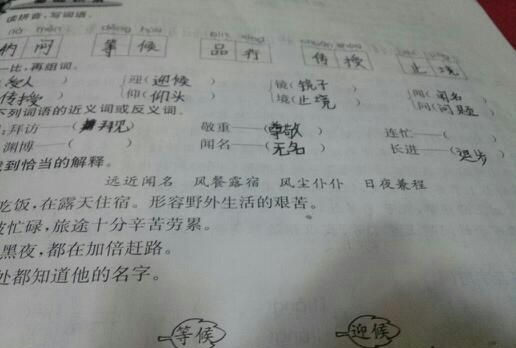 读拼音，写词语。
问 等候 品行 传授 止境
一比，再组词。
迎（迎候） 镜（镜子） 闻（闻名
传授） 仰（仰头） 境（止境） 问（问题
列词语的近义词或反义词。
拜访——（拜见） 敬重——（尊敬） 连忙——（
渊博——（ ） 闻名——（无名） 长进——（退步
找到恰当的解释。
远近闻名 风餐露宿 风尘仆仆 日夜兼程
吃饭，在露天住宿。形容野外生活的艰苦。
忙碌，旅途十分辛苦劳累。
黑夜，都在加倍赶路。
处都知道他的名字。
等候 迎候